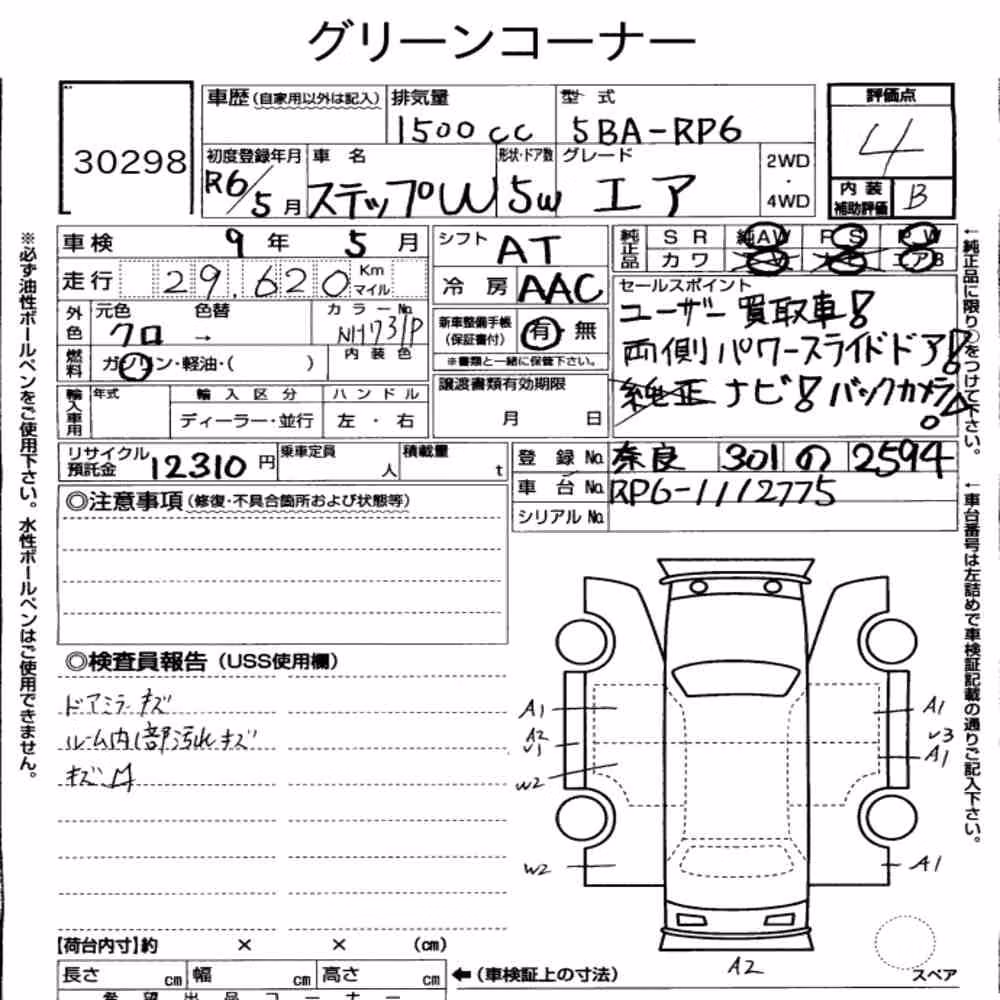 グリーンコーナー
30298
車歴(自家用以外は記入)
排気量
1500cc
型 式
5BA-RP6
評価点
4
内装
補助評価
B
初度登録年月
R6/5月
車 名
ステップW
形状・ドア数
5W
グレード
エア
2WD
・
4WD
車検 9年 5月
走行 29,620 Km
マイル
外色
元色
クロ
色替
→
カラーNo.
NH731P
燃料
ガソリン・軽油・( )
内 装 色
輸入車用
年式
輸 入 区 分
ディーラー・並行
ハ ン ド ル
左 ・ 右
シフト AT
冷 房 AAC
新車整備手帳
(保証書付)
有・無
※書類と一緒に保管下さい。
譲渡書類有効期限
月 日
純正品
S R
純AW
P S
P W
カ ワ
エアB
セールスポイント
ユーザー買取車!
両側パワースライドドア!
純正ナビ!バックカメラ!
リサイクル
預託金
12310円
乗車定員
人
積載量
t
登 録 No. 奈良 301 の 2594
車 台 No. RP6-1112775
シリアル No.
◎注意事項(修復・不具合箇所および状態等)
◎検査員報告(USS使用欄)
ドアミラーキズ
ルーム内1部汚れキズ
キズ凹
A1
A2
V1
W2
W2
A1
V3
A1
A1
A2
スペア
【荷台内寸】約 × × (cm)
長さ cm 幅 cm 高さ cm
←(車検証上の寸法)
希 望 出 品 コ ー ナ ー
※必ず油性ボールペンをご使用下さい。水性ボールペンはご使用できません。
←純正品に限り○をつけて下さい。
←車台番号は左詰めで車検証記載の通りご記入下さい。